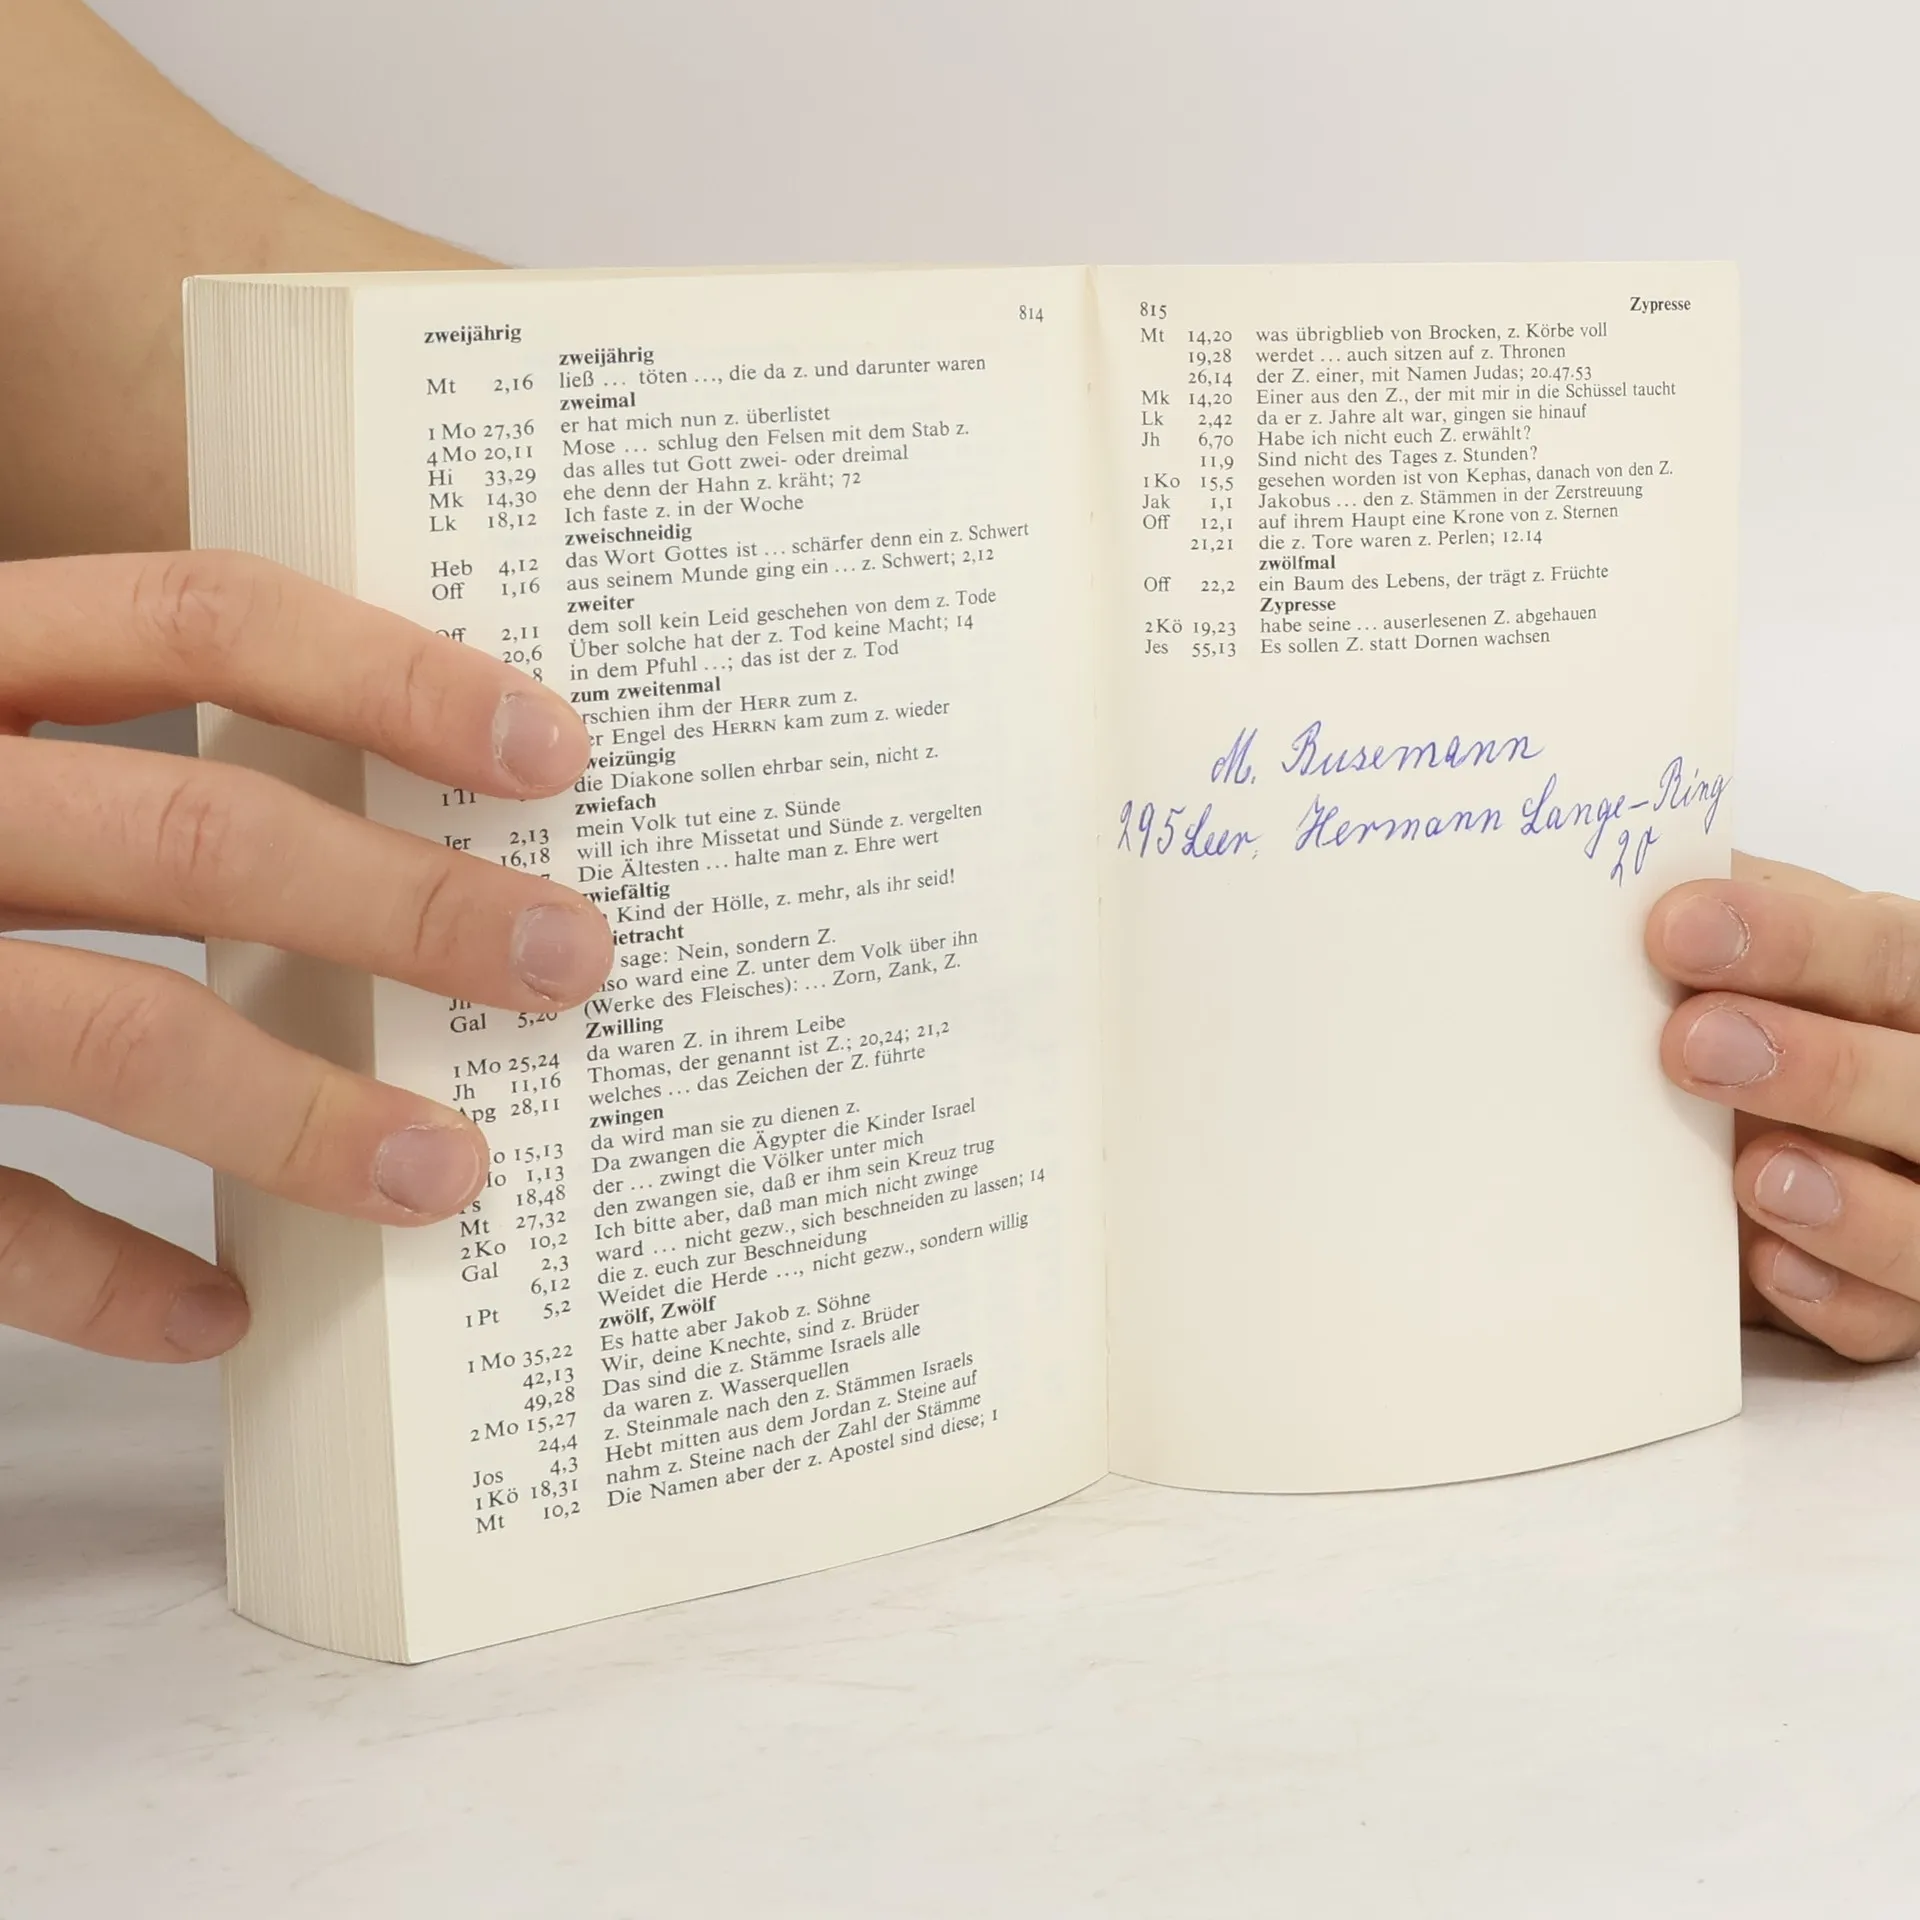 zweijährig 814
zweijährig
Mt 2,16 ließ ... töten ..., die da z. und darunter waren
zweimal
1 Mo 27,36 er hat mich nun z. überlistet
4 Mo 20,11 Mose ... schlug den Felsen mit dem Stab z.
Hi 33,29 das alles tut Gott zwei- oder dreimal
Mk 14,30 ehe denn der Hahn z. kräht; 72
Lk 18,12 Ich faste z. in der Woche
zweischneidig
Heb 4,12 das Wort Gottes ist ... schärfer denn ein z. Schwert
Off 1,16 aus seinem Munde ging ein ... z. Schwert; 2,12
zweiter
Off 2,11 dem soll kein Leid geschehen von dem z. Tode
20,6 Über solche hat der z. Tod keine Macht; 14
8 in dem Pfuhl ...; das ist der z. Tod
zum zweitenmal
rschien ihm der HERR zum z.
er Engel des HERRN kam zum z. wieder
weizüngig
1 Ti die Diakone sollen ehrbar sein, nicht z.
zwiefach
Jer 2,13 mein Volk tut eine z. Sünde
16,18 will ich ihre Missetat und Sünde z. vergelten
Die Ältesten ... halte man z. Ehre wert
wiefältig
Kind der Hölle, z. mehr, als ihr seid!
ietracht
sage: Nein, sondern Z.
Jh lso ward eine Z. unter dem Volk über ihn
Gal 5,20 (Werke des Fleisches): ... Zorn, Zank, Z.
Zwilling
1 Mo 25,24 da waren Z. in ihrem Leibe
Jh 11,16 Thomas, der genannt ist Z.; 20,24; 21,2
Apg 28,11 welches ... das Zeichen der Z. führte
zwingen
o 15,13 da wird man sie zu dienen z.
Mo 1,13 Da zwangen die Ägypter die Kinder Israel
Ps 18,48 der ... zwingt die Völker unter mich
Mt 27,32 den zwangen sie, daß er ihm sein Kreuz trug
2 Ko 10,2 Ich bitte aber, daß man mich nicht zwinge
Gal 2,3 ward ... nicht gezw., sich beschneiden zu lassen; 14
6,12 die z. euch zur Beschneidung
1 Pt 5,2 Weidet die Herde ..., nicht gezw., sondern willig
zwölf, Zwölf
1 Mo 35,22 Es hatte aber Jakob z. Söhne
42,13 Wir, deine Knechte, sind z. Brüder
49,28 Das sind die z. Stämme Israels alle
2 Mo 15,27 da waren z. Wasserquellen
24,4 z. Steinmale nach den z. Stämmen Israels
Jos 4,3 Hebt mitten aus dem Jordan z. Steine auf
1 Kö 18,31 nahm z. Steine nach der Zahl der Stämme
Mt 10,2 Die Namen aber der z. Apostel sind diese; 1
815 Zypresse
Mt 14,20 was übrigblieb von Brocken, z. Körbe voll
19,28 werdet ... auch sitzen auf z. Thronen
26,14 der Z. einer, mit Namen Judas; 20.47.53
Mk 14,20 Einer aus den Z., der mit mir in die Schüssel taucht
Lk 2,42 da er z. Jahre alt war, gingen sie hinauf
Jh 6,70 Habe ich nicht euch Z. erwählt?
11,9 Sind nicht des Tages z. Stunden?
1 Ko 15,5 gesehen worden ist von Kephas, danach von den Z.
Jak 1,1 Jakobus ... den z. Stämmen in der Zerstreuung
Off 12,1 auf ihrem Haupt eine Krone von z. Sternen
21,21 die z. Tore waren z. Perlen; 12.14
zwölfmal
Off 22,2 ein Baum des Lebens, der trägt z. Früchte
Zypresse
2 Kö 19,23 habe seine ... auserlesenen Z. abgehauen
Jes 55,13 Es sollen Z. statt Dornen wachsen
M. Busemann
295 Leer, Hermann Lange-Ring
20